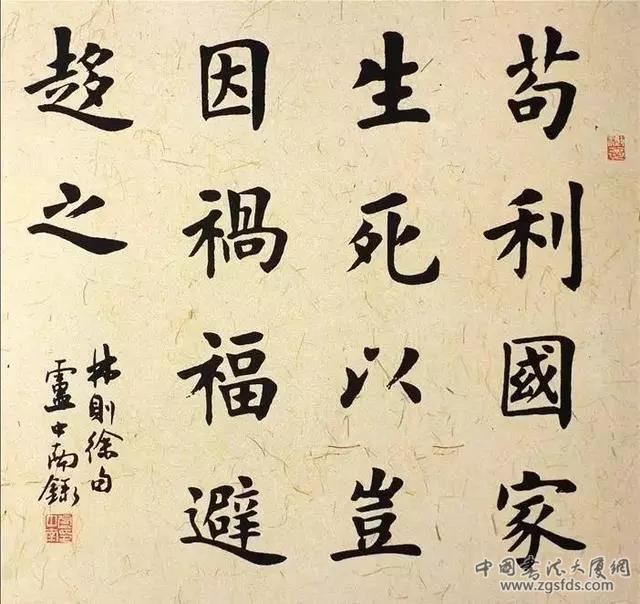 苟利國家
生死以豈
因禍福避
趍之
林則徐句
盧中南録
中國書法大厦網
www.zgsfds.com